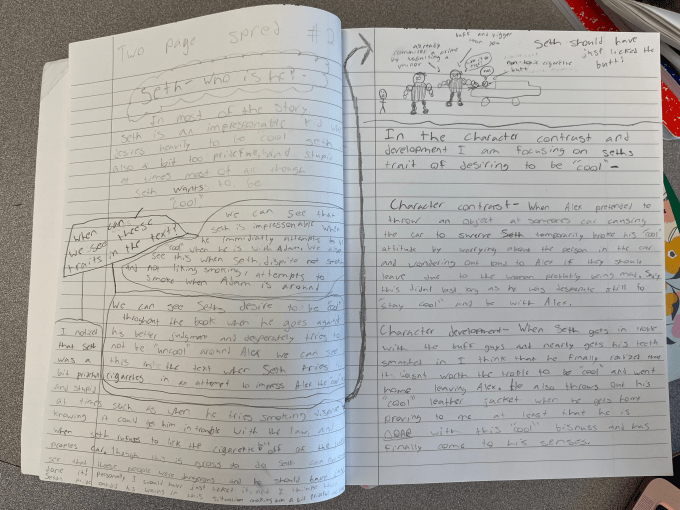 Two page spred #2
Seth - who is he?
In most of the story
seth is an impressionable kid who
desires heavily to be cool
also a bit too prideful, and stupid
at times most of all though
seth wants to be
"cool"
when can
we see these
traits in the text?
We can see that
seth is impressionable when
he immediatly attempts to
"cool" when he is with Adam,
see this when Seth, dispite not
and not liking smoking, attempts to
smoke when Adam is around
We can see Seths desire to be "cool"
throughout the book when he goes against
his better judgment and desperately tries to
not be "uncool" around Alex we can see
this in the text when Seth tries
cigaretes in an attempt to impress Alex
I noticed
that seth
was a
bit prideful
and stupid
at times such as when he tries smoking
knowing it could get him in trouble with the law and
when seth refuses to lick the cigarette butt off of the
peoples car, though this is gross to do, seth
see that these people were dangerous and he should have
done it! personally I would have just licked it, and I
Seths
Seth should have
just licked the
butt!
buff and bigger
than you
already
a crime
by a
minor
non-toxic cigarette
butt
In the character contrast and
development I am focusing on Seths
trait of desiring to be "cool"-
Character contrast- When Alex pretended to
throw an object at someones car causing
the car to swerve Seth temporarily broke his "cool"
attitude by worrying about the person in the car
and wondering out loud to Alex if they should
leave due to the woman probably being mad.
this didnt last long as he was desperate still to
"stay cool" and be with Alex.
Character development- When Seth gets in
with the buff guys and nearly gets his teeth
smashed in I think that he finally realized that
it wasnt worth the to be "cool" and went
home leaving Alex. He also throws out his
"cool" leather jacket when he gets home
proving to me at least that he is
DONE with this "cool" bisness and has
finally come to his senses.